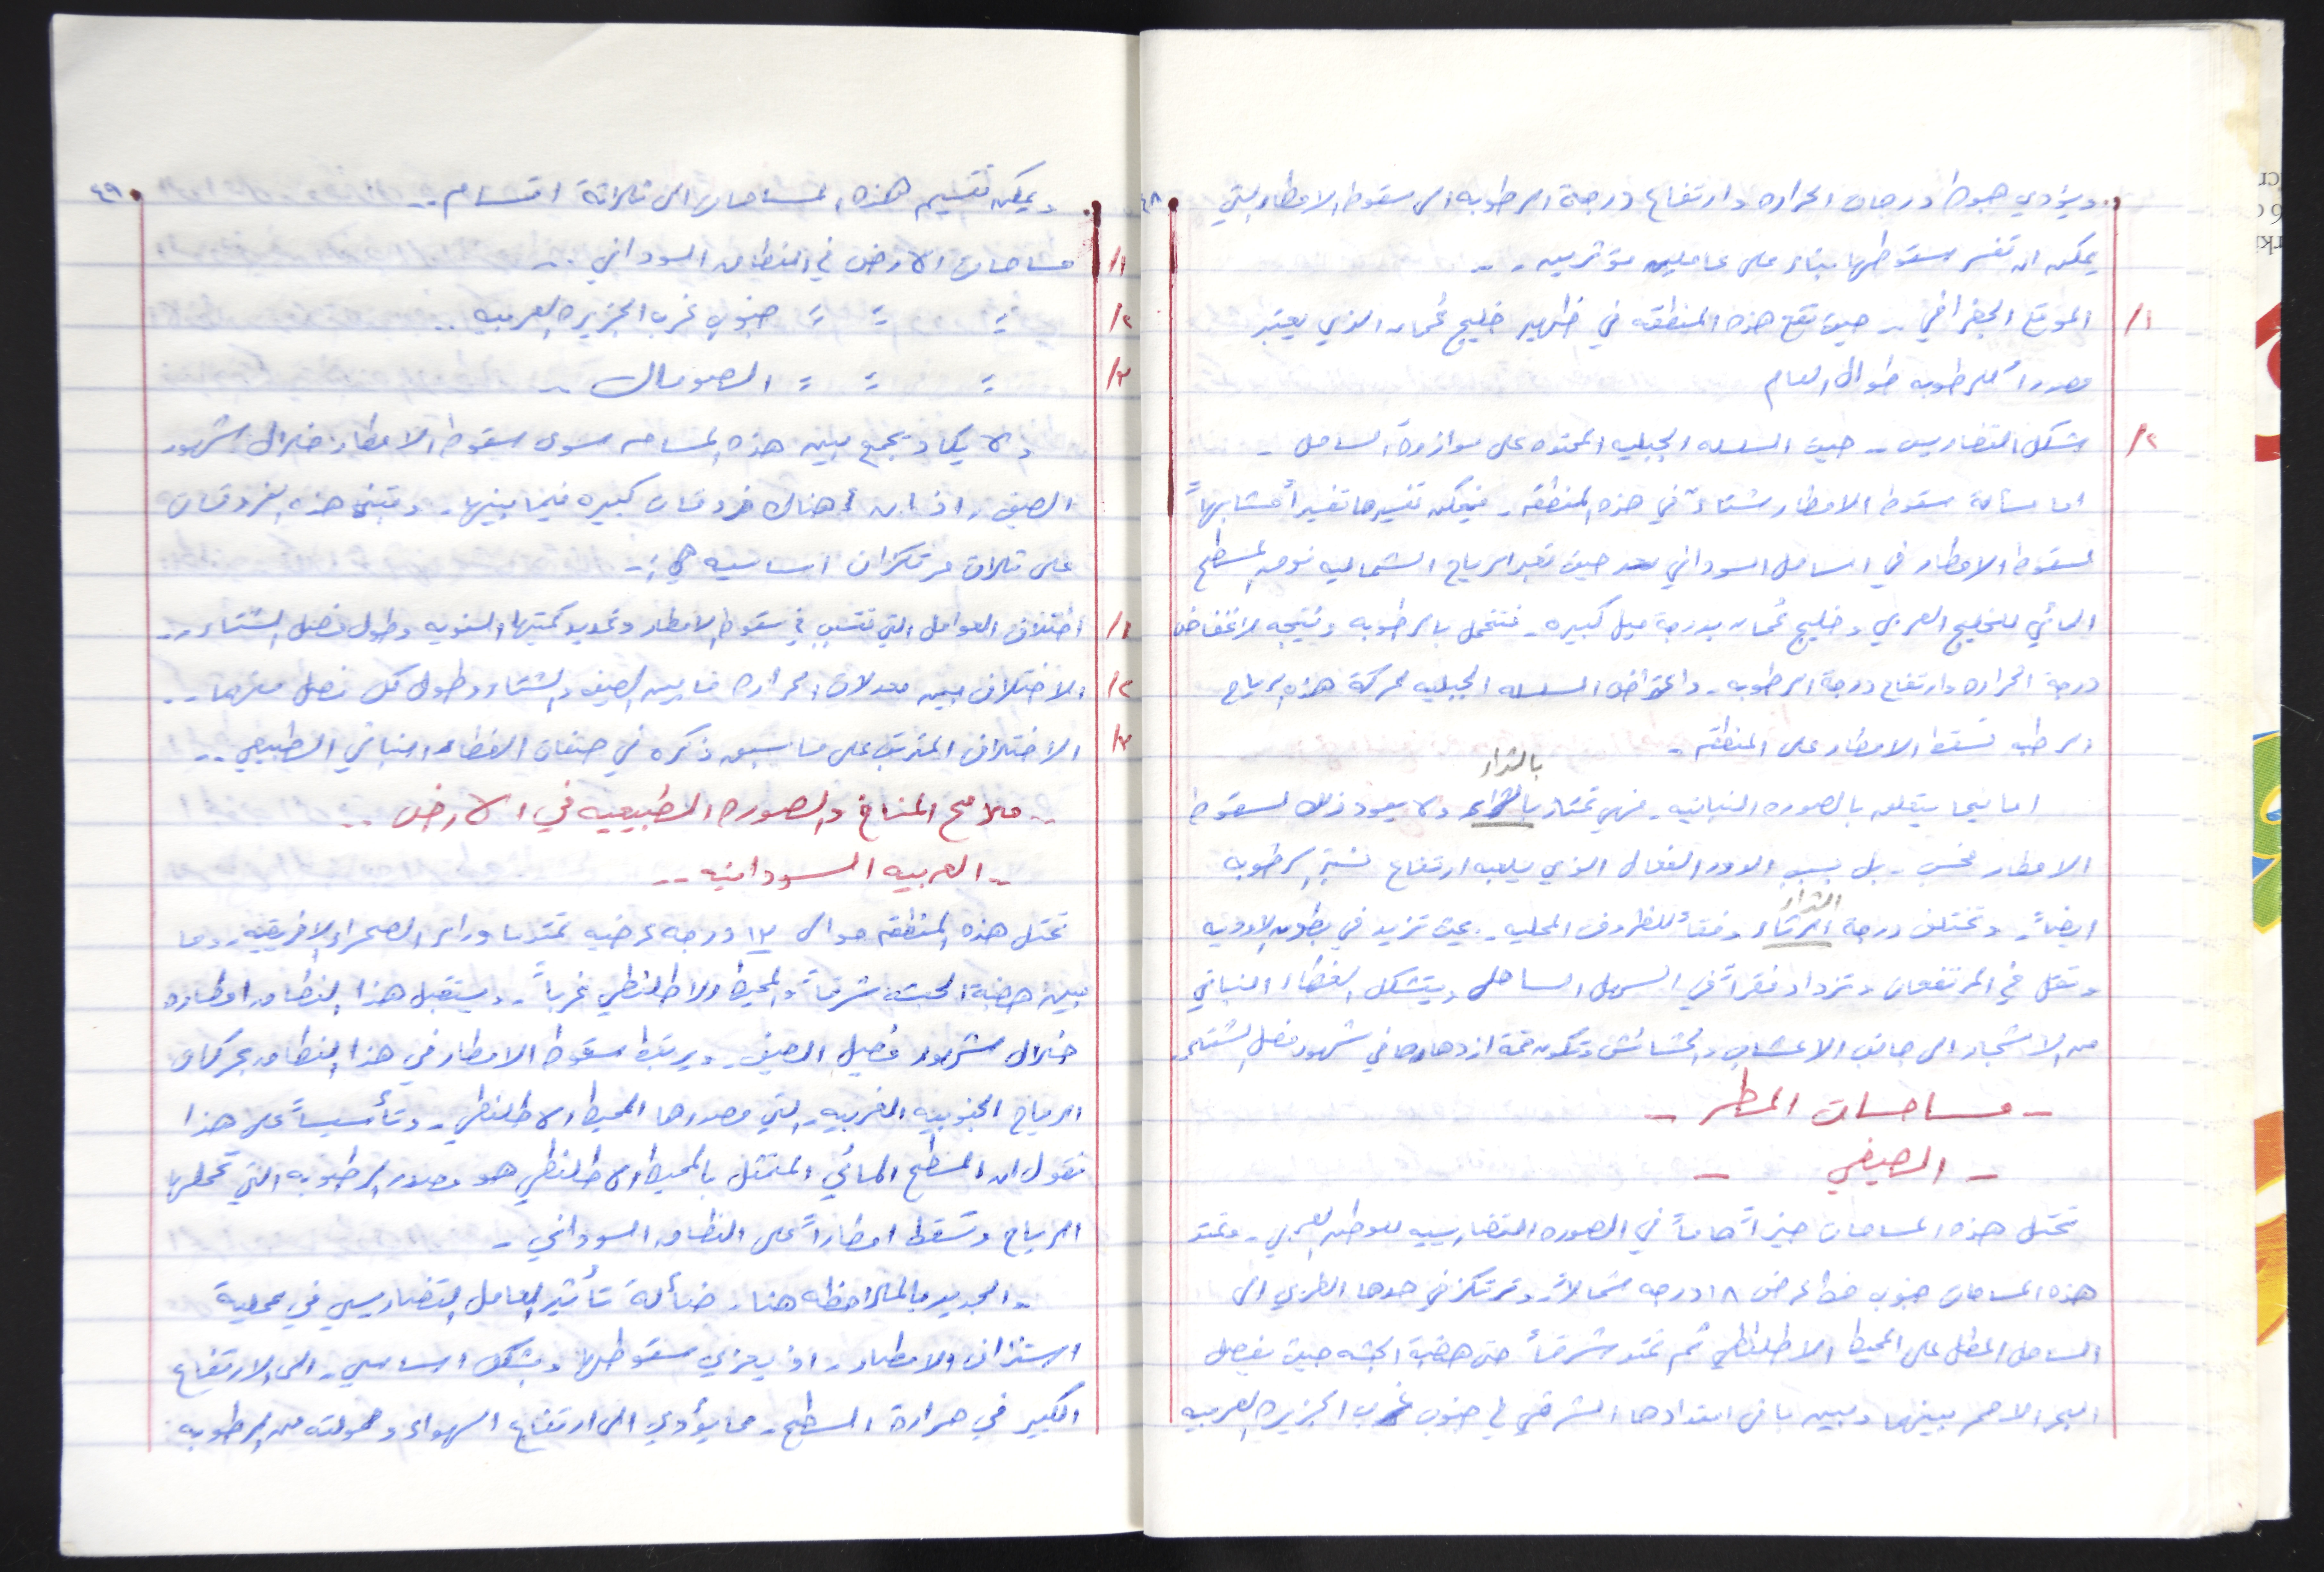 ٤٨
ويؤدي هبوط درجات الحراره وارتفاع درجة الرطوبه الى سقوط الامطار التي
يمكن ان تفسر سقوطها بناء على عاملين مؤثرين ..
١/ الموقع الجغرافي .. حيث تقع هذه المنطقه في ظهير خليج عُمان الذي يعتبر
مصدراً للرطوبه طوال العام
٢/ شكل التضاريس .. حيث السلسله الجبليه الممتده على موازاة الساحل .
اما مسألة سقوط الامطار شتاءً في هذه المنطقه . فيمكن تفسيرها تفسيراً مشابهاً
لسقوط الامطار في الساحل السوداني حيث تعبر الرياح الشماليه فوق المسطح
المائي للخليج العربي وخليج عُمان بدرجة ميل كبيره . فتتحمل بالرطوبه ونتيجه لانخفاض
درجة الحراره وارتفاع درجة الرطوبه . واعتراض السلسله الجبليه لحركة هذه الرياح
الرطبه تسقط الامطار على المنطقه .
بالثراء
اما فيما يتعلق بالصوره النباتيه . فهي تمتاز بالثراء ولا يعود ذلك لسقوط
الامطار فحسب . بل بسبب الدور الفعال الذي يلعبه ارتفاع نسبة الرطوبه
الثراء
ايضاً . وتختلف درجة الثراء وفقاً للظروف المحليه . بحيث تزيد في بطون الاوديه
وتقل في المرتفعات وتزداد فقراً في السهل الساحلي ويتشكل الغطاء النباتي
من الاشجار الى جانب الاعشاب والحشائش وتكون قمة ازدهارها في شهور فصل الشتاء.
- مساحات المطر -
- الصيفي -
تحتل هذه المساحات حيزاً هاماً في الصوره التضاريسيه للوطن العربي . وتمتد
هذه المساحات جنوب خط عرض ١٨ درجه شمالاً . وترتكز في حدها الغربي الى
الساحل المطل على المحيط الاطلنطي ثم تمتد شرقاً حتى هضبة الحبشه حيث يفصل
البحر الاحمر بينها وبين باقي امتدادها الشرقي في جنوب غرب الجزيره العربيه
٤٩
ويمكن تقسيم هذه المساحات الى ثلاثة اقسام ..
١/ مساحات الارض في النطاق السوداني ..
٢/ " " " جنوب غرب الجزيره العربيه ..
٣/ " " " الصومال ..
ولا يكاد يجمع بين هذه المساحه سوى سقوط الامطار خلال شهور
الصيف . اذ ان هناك فروقات كبيره فيما بينها . وتبنى هذه الفروقات
على ثلاث مرتكزات اساسيه هي :-
١/ اختلاف العوامل التي تتسبب في سقوط الامطار وتحديد كميتها السنويه وطول فصل الشتاء ..
٢/ الاختلاف بين معدلات الحراره ما بين الصيف والشتاء وطول كل فصل منهما ..
٣/ الاختلاف المترتب على ما سبق ذكره في صفات الغطاء النباتي الطبيعي ..
.. ملامح المناخ والصوره الطبيعيه في الارض ..
.. العربيه السودانيه ..
تحتل هذه المنطقه حوالى ١٣ درجه عرضيه تمتد ما وراء الصحراء الافريقيه . وما
بين هضبة الحبشه شرقاً والمحيط الاطلنطي غرباً . ويستقبل هذا النطاق امطاره
خلال شهور فصل الصيف . ويرتبط سقوط الامطار في هذا النطاق بحركات
الرياح الجنوبيه الغربيه . التي مصدرها المحيط الاطلنطي . وتأسيساً على هذا
نقول ان المسطح المائي المتمثل بالمحيط الاطلنطي هو مصدر الرطوبه التي تحملها
الرياح وتسقط امطاراً على النطاق السوداني .
والجدير بالملاحظه هنا . ضئالة تأثير العامل التضاريسي في عملية
استنزاف الامطار . اذ يعزي سقوطها وبشكل اساسي . الى الارتفاع
الكبير في حرارة السطح . مما يؤدي الى ارتفاع الهواء وحمولته من الرطوبه